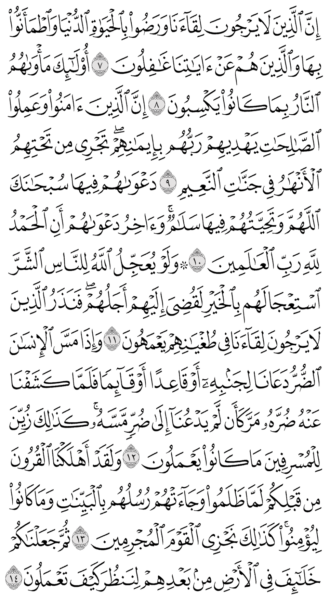 إِنَّ ٱلَّذِينَ لَا يَرْجُونَ لِقَآءَنَا وَرَضُوا۟ بِٱلْحَيَوٰةِ ٱلدُّنْيَا وَٱطْمَأَنُّوا۟
بِهَا وَٱلَّذِينَ هُمْ عَنْ ءَايَٰتِنَا غَٰفِلُونَ ٧ أُو۟لَٰٓئِكَ مَأْوَىٰهُمُ
ٱلنَّارُ بِمَا كَانُوا۟ يَكْسِبُونَ ٨ إِنَّ ٱلَّذِينَ ءَامَنُوا۟ وَعَمِلُوا۟
ٱلصَّٰلِحَٰتِ يَهْدِيهِمْ رَبُّهُم بِإِيمَٰنِهِمْ ۖ تَجْرِى مِن تَحْتِهِمُ
ٱلْأَنْهَٰرُ فِى جَنَّٰتِ ٱلنَّعِيمِ ٩ دَعْوَىٰهُمْ فِيهَا سُبْحَٰنَكَ
ٱللَّهُمَّ وَتَحِيَّتُهُمْ فِيهَا سَلَٰمٌ ۚ وَءَاخِرُ دَعْوَىٰهُمْ أَنِ ٱلْحَمْدُ
لِلَّهِ رَبِّ ٱلْعَٰلَمِينَ ١٠ ۞ وَلَوْ يُعَجِّلُ ٱللَّهُ لِلنَّاسِ ٱلشَّرَّ
ٱسْتِعْجَالَهُم بِٱلْخَيْرِ لَقُضِىَ إِلَيْهِمْ أَجَلُهُمْ ۖ فَنَذَرُ ٱلَّذِينَ
لَا يَرْجُونَ لِقَآءَنَا فِى طُغْيَٰنِهِمْ يَعْمَهُونَ ١١ وَإِذَا مَسَّ ٱلْإِنسَٰنَ
ٱلضُّرُّ دَعَانَا لِجَنۢبِهِۦٓ أَوْ قَاعِدًا أَوْ قَآئِمًا فَلَمَّا كَشَفْنَا
عَنْهُ ضُرَّهُۥ مَرَّ كَأَن لَّمْ يَدْعُنَآ إِلَىٰ ضُرٍّ مَّسَّهُۥ ۚ كَذَٰلِكَ زُيِّنَ
لِلْمُسْرِفِينَ مَا كَانُوا۟ يَعْمَلُونَ ١٢ وَلَقَدْ أَهْلَكْنَا ٱلْقُرُونَ
مِن قَبْلِكُمْ لَمَّا ظَلَمُوا۟ ۙ وَجَآءَتْهُمْ رُسُلُهُم بِٱلْبَيِّنَٰتِ وَمَا كَانُوا۟
لِيُؤْمِنُوا۟ ۚ كَذَٰلِكَ نَجْزِى ٱلْقَوْمَ ٱلْمُجْرِمِينَ ١٣ ثُمَّ جَعَلْنَٰكُمْ
خَلَٰٓئِفَ فِى ٱلْأَرْضِ مِنۢ بَعْدِهِمْ لِنَنظُرَ كَيْفَ تَعْمَلُونَ ١٤